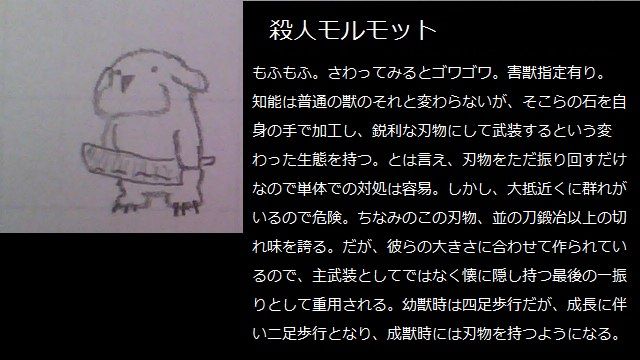 殺人モルモット
もふもふ。さわってみるとゴワゴワ。害獣指定有り。
知能は普通の獣のそれと変わらないが、そこらの石を自
身の手で加工し、鋭利な刃物にして武装するという変
わった生態を持つ。とは言え、刃物をただ振り回すだけ
なので単体での対処は容易。しかし、大抵近くに群れが
いるので危険。ちなみのこの刃物、並の刀鍛冶以上の切
れ味を誇る。だが、彼らの大きさに合わせて作られてい
るので、主武装としてではなく懐に隠し持つ最後の一振
りとして重用される。幼獣時は四足歩行だが、成長に伴
い二足歩行となり、成獣時には刃物を持つようになる。